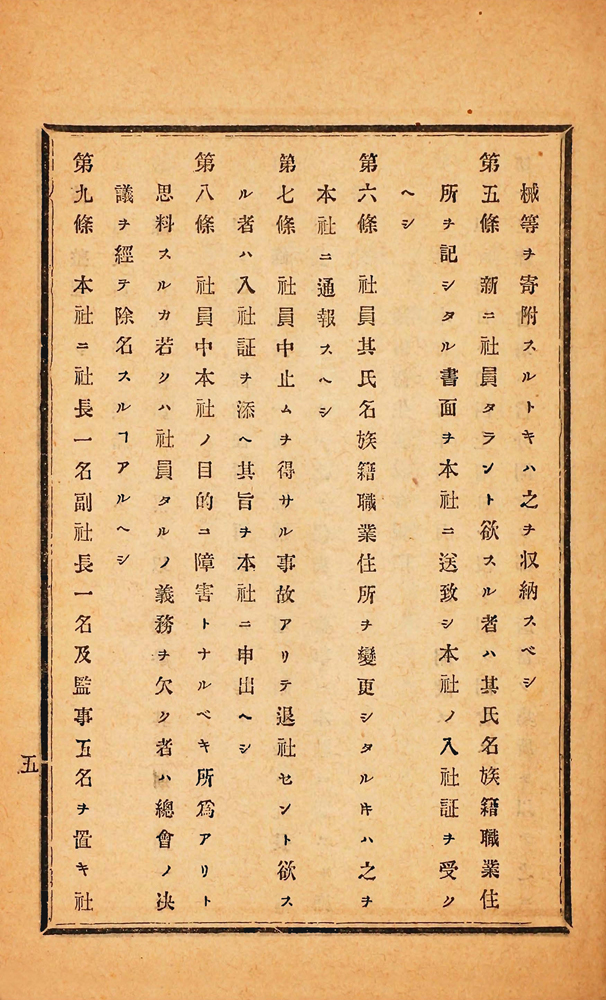 械等ヲ寄附スルトキハ之ヲ収納スベシ
第五條 新ニ社員タラント欲スル者ハ其氏名族籍職業住
所ヲ記シタル書面ヲ本社ニ送致シ本社ノ入社証ヲ受ク
ヘシ
第六條 社員其氏名族籍職業住所ヲ變更シタルㇳキハ之ヲ
本社ニ通報スヘシ
第七條 社員中止ムヲ得サル事故アリテ退社セント欲ス
ル者ハ入社証ヲ添ヘ其旨ヲ本社ニ申出ヘシ
第八條 社員中本社ノ目的ニ障害トナルベキ所爲アリト
思料スルカ若クハ社員タルノ義務ヲ欠ク者ハ總會ノ决
議ヲ經テ除名スルヿアルヘシ
第九條 本社ニ社長一名副社長一名及監事五名ヲ置キ社
五